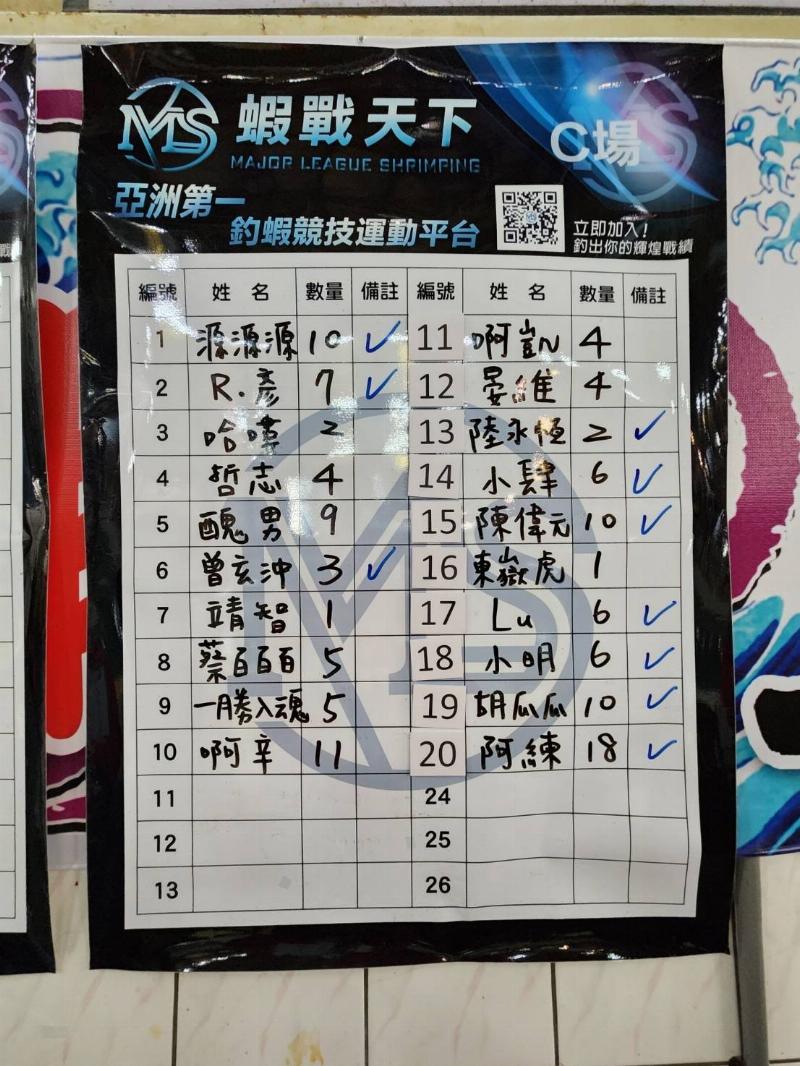 MLS 蝦戰天下 C場
MAJOR LEAGUE SHRIMPING
亞洲第一
釣蝦競技運動平台
立即加入!
釣出你的輝煌戰績
編號 姓名 數量 備註 編號 姓名 數量 備註
1 源源源 10 ✓ 11 啊凱 4
2 R.彥 7 ✓ 12 晏維 4
3 哈嘩 2 13 陸永恒 2 ✓
4 哲志 4 14 小肆 6 ✓
5 醜男 9 15 陳偉元 10 ✓
6 曾玄沖 3 ✓ 16 東嶽虎 1
7 靖智 1 17 Lu 6 ✓
8 蔡百百百 5 18 小明 6 ✓
9 一勝入魂 5 19 胡瓜瓜 10 ✓
10 啊辛 11 20 阿練 18 ✓
11 24
12 25
13 26